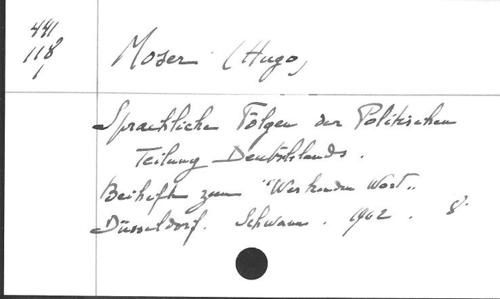 441
118
1
Moser (Hugo)
Sprachliche Folgen der Politischen
Teilung Deutschlands.
Beiheft zum "Wirkenden Wort"..
Düsseldorf. Schwann. 1962. 8°